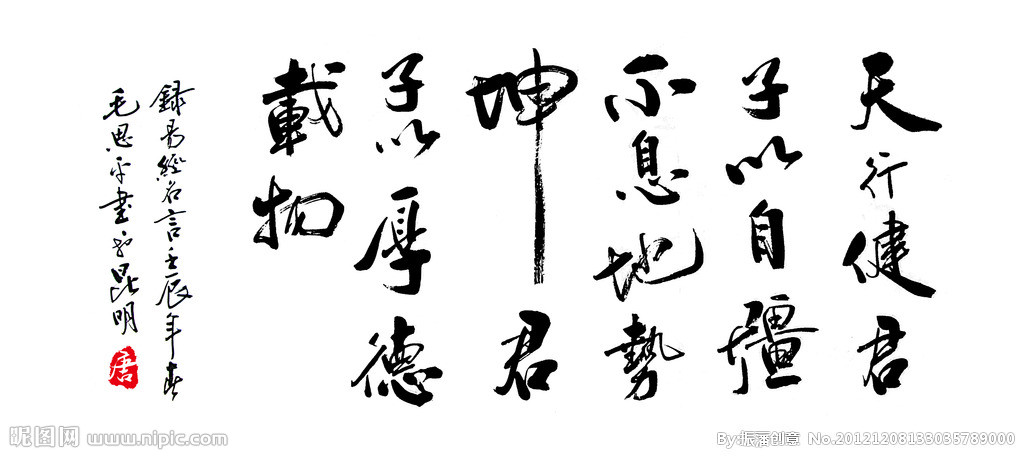 天行健君
子以自彊
不息地勢
坤君
子以厚德
載物
録易經名言壬辰年春
毛思平書於昆明
唐
昵图网 www.nipic.com
By:振藩创意 No.20121208133035789000